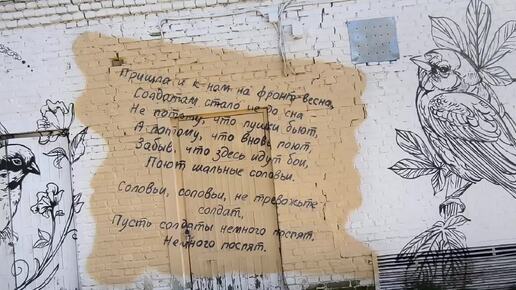 Пришла и к нам на фронт весна,
Солдатам стало не до сна
Не потому, что пушки бьют,
А потому, что вновь поют,
Забыв, что здесь идут бои,
Поют шальные соловьи.
Соловьи, соловьи, не тревожьте
солдат,
Пусть солдаты немного поспят,
Немного поспят.